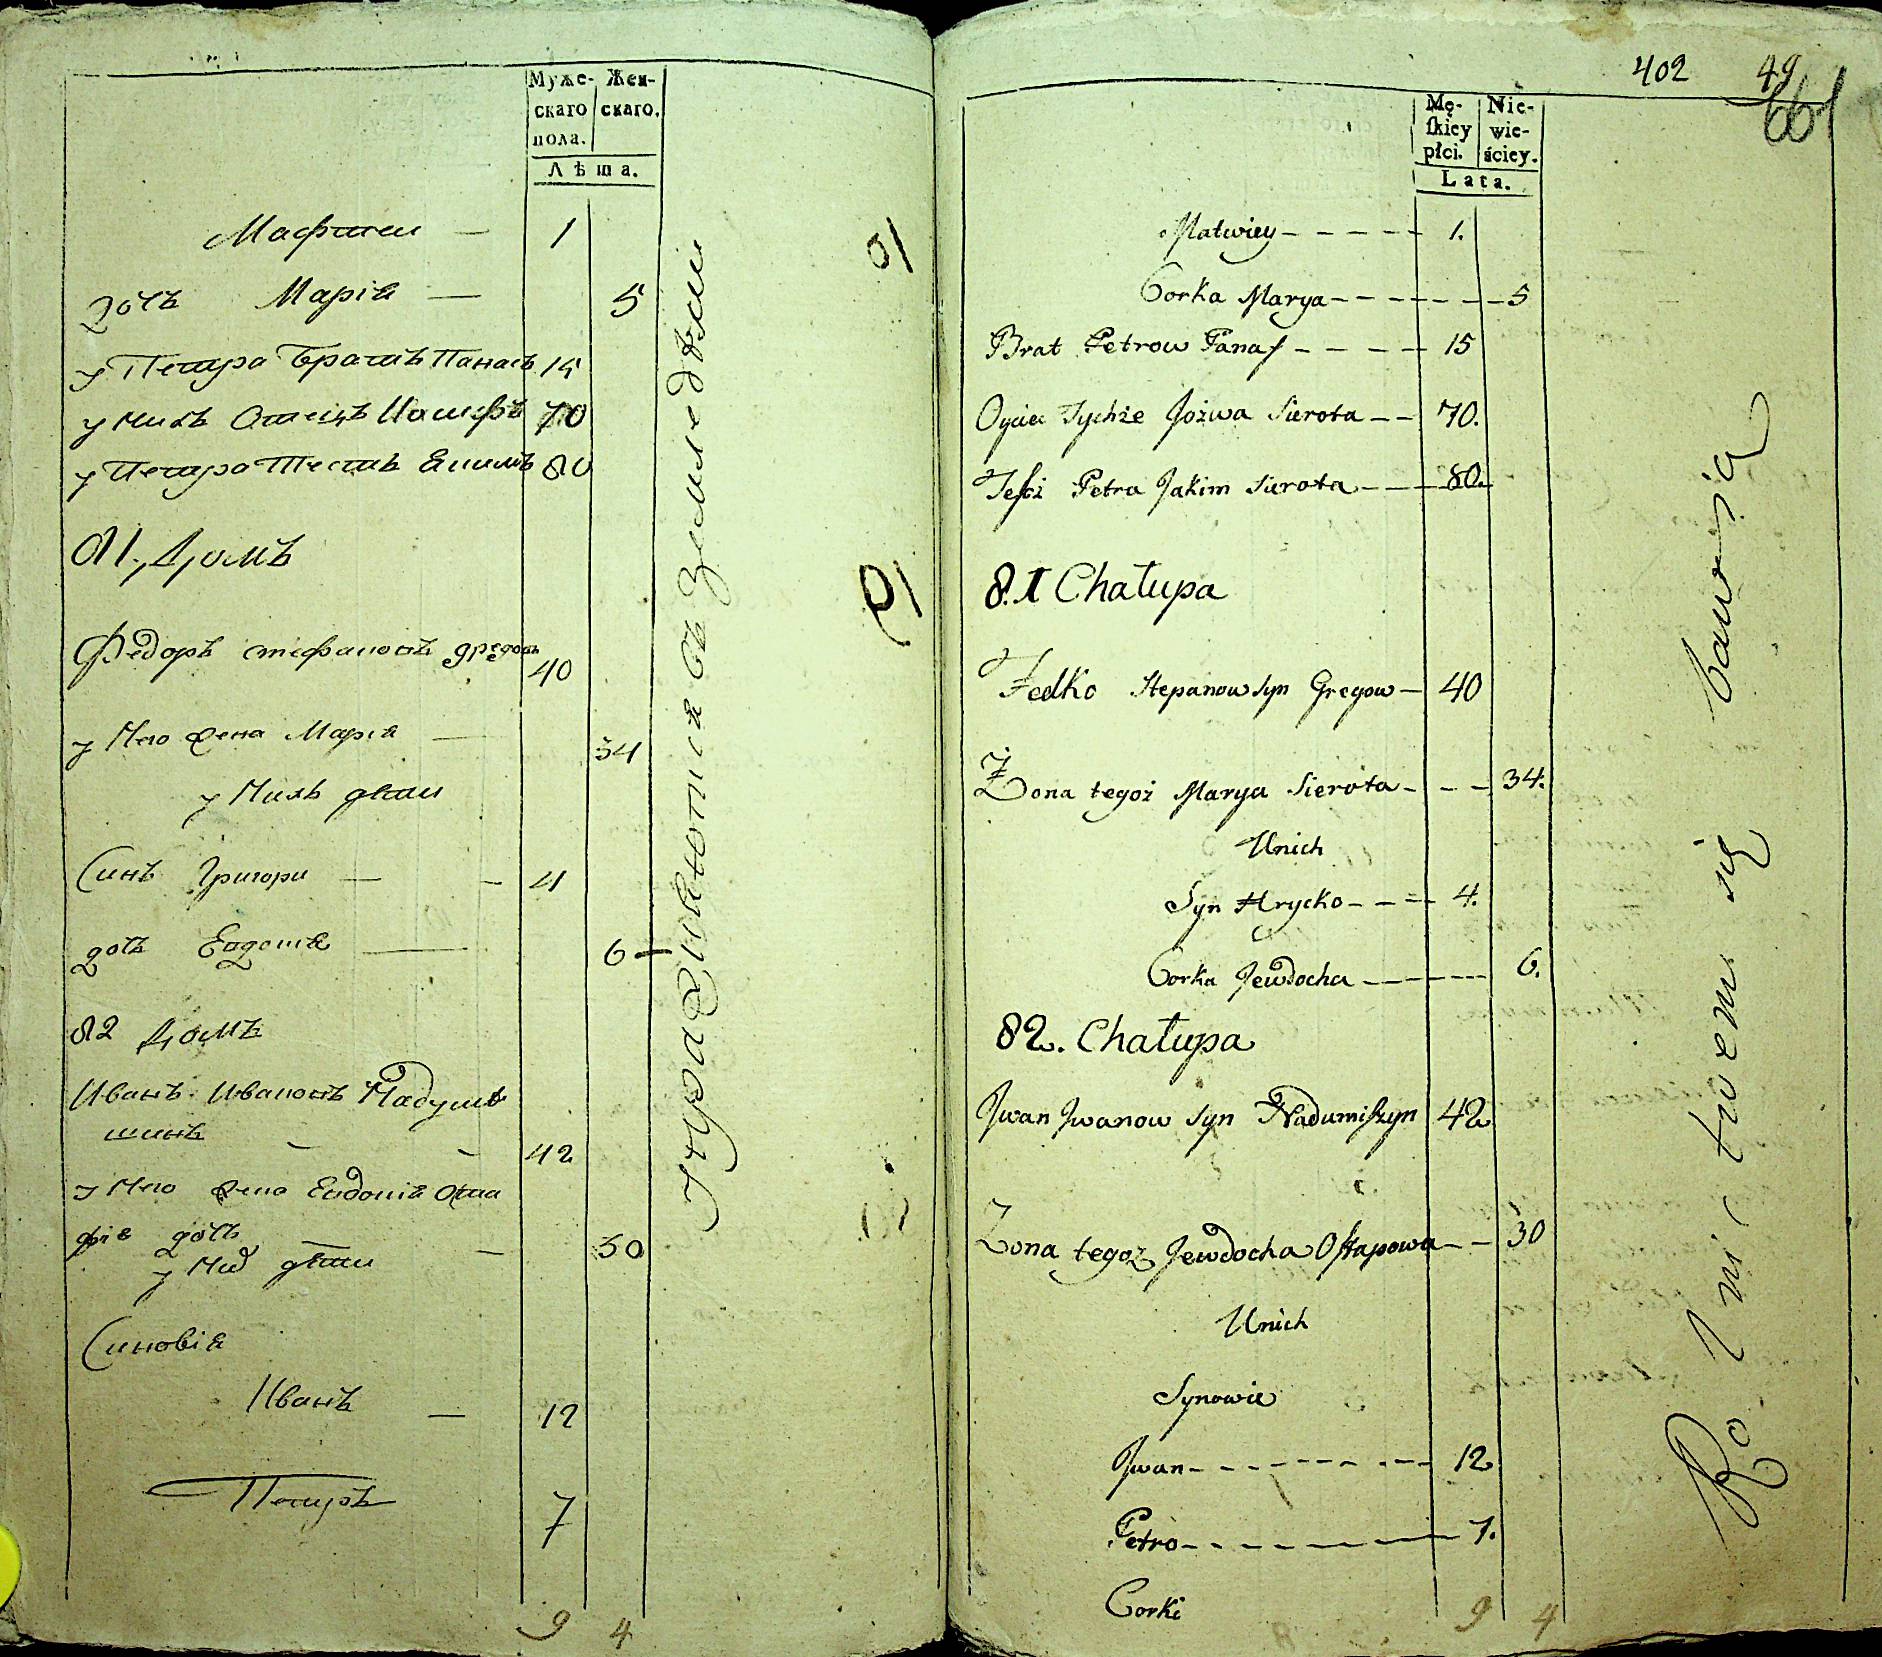 Муже- Жен-
скаго скаго.
пола.
Лѣта.
Мафтеи — 1
дочъ Марія — 5
у Петра братъ Панасъ 15
у Нихъ Отецъ Иосифъ 70
у Петра Тесть Екимъ 80
81. Домъ
Федоръ стефановъ 40
у Него жена Марія — 34
у Нихъ дѣти
Синъ Григори — — 4
дочъ Евдокія — 6
82 Домъ
Иванъ Ивановъ Надуми
шинъ — — 42
у Него жена Евдокія Оста
фіе дочъ — 30
у Них дѣти
Синовія
Иванъ — 12
Петръ 7
9 4
402 49
661
Mę- Nie-
skiey wie-
płci. ściey.
Lata.
Matwiey - - - - - 1.
Corka Marya - - - - - - 5
Brat Petrow Panas - - - - 15
Oyciec Tychże Jozwa Sierota - - 70.
Teść Petra Jakim Sierota - - - 80.
81 Chałupa
Fedko Stepanow Syn Gregow - 40
Żona tegoż Marya Sierota - - - 34.
Unich
Syn Hrycko - - - - 4.
Corka Jewdocha - - - - - 6.
82. Chałupa
Jwan Jwanow Syn Nadumiszyn 42
Żona tegoż Jewdocha Ostapowa - - 30
Unich
Synowie
Jwan - - - - - - - - 12
Petro - - - - - - - 7.
Corki
9 4
Rolnictwem się bawią